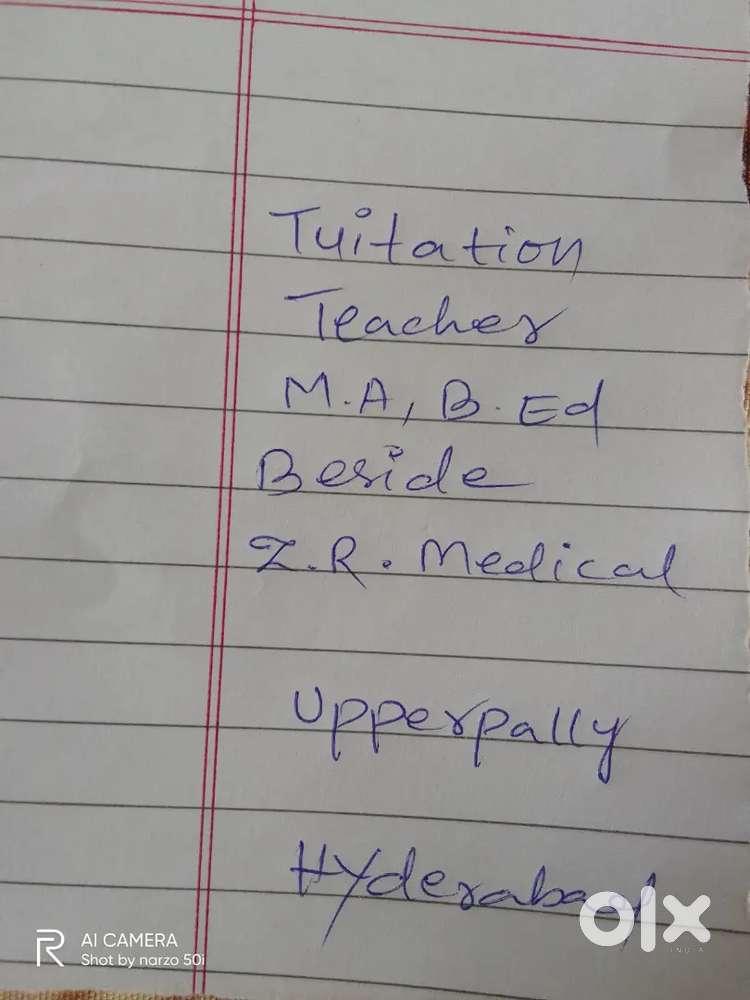 Tuitation
Teacher
M.A, B.Ed
Beside
Z.R. Medical
Upperpally
Hyderabad
olx
INDIA
R
AI CAMERA
Shot by narzo 50i